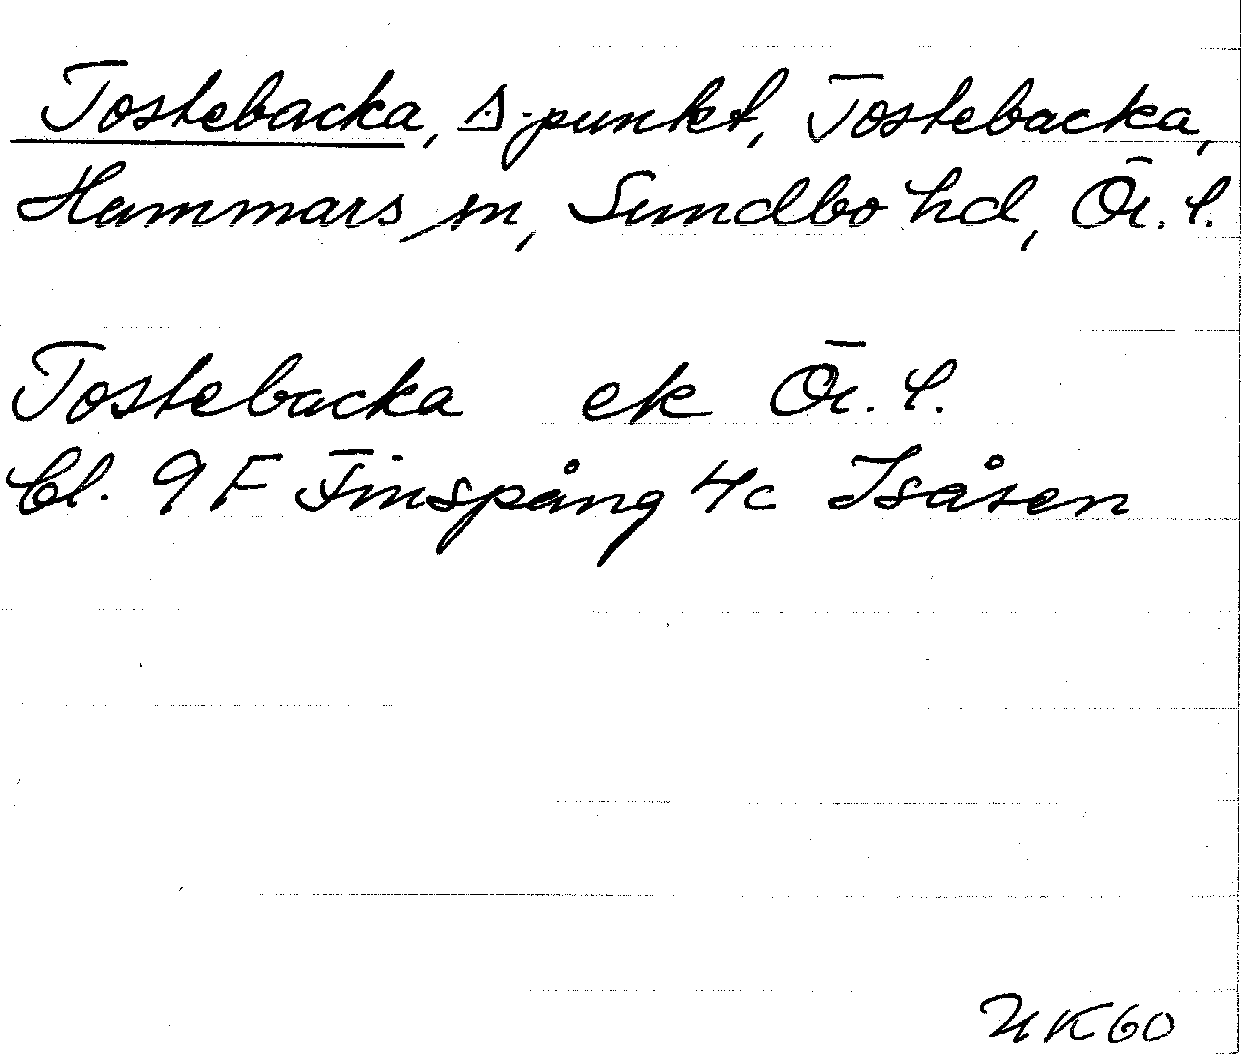 Tostebacka, Δ-punkt, Tostebacka,
Hammars sn, Sundbo hd, Ör. l.
Tostebacka ek Ör. l.
Bl. 9F Finspång 4c Isåsen
UK60